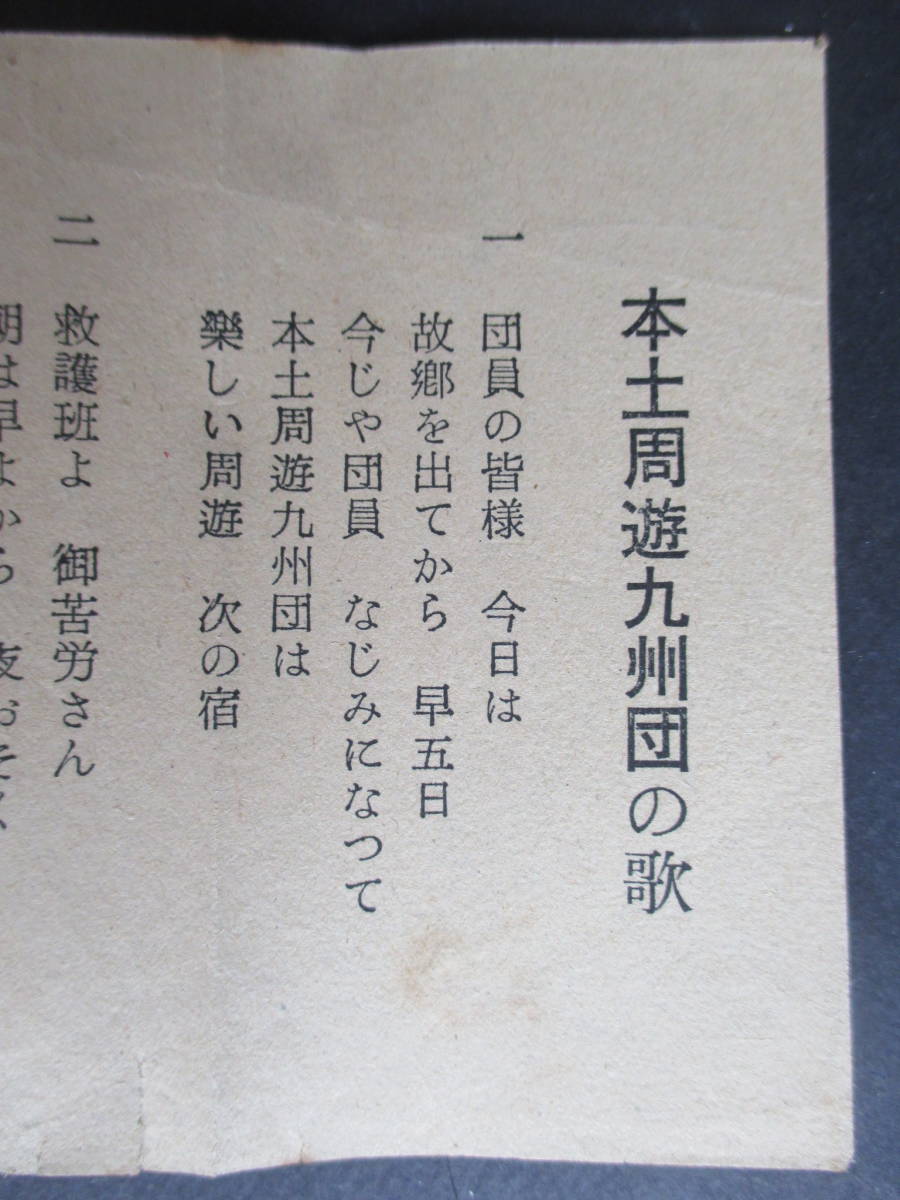 本土周遊九州団の歌
一 団員の皆様 今日は
故郷を出てから 早五日
今じや団員 なじみになつて
本土周遊九州団は
樂しい周遊 次の宿
二 救護班よ 御苦労さん
朝は早よから 夜おそく